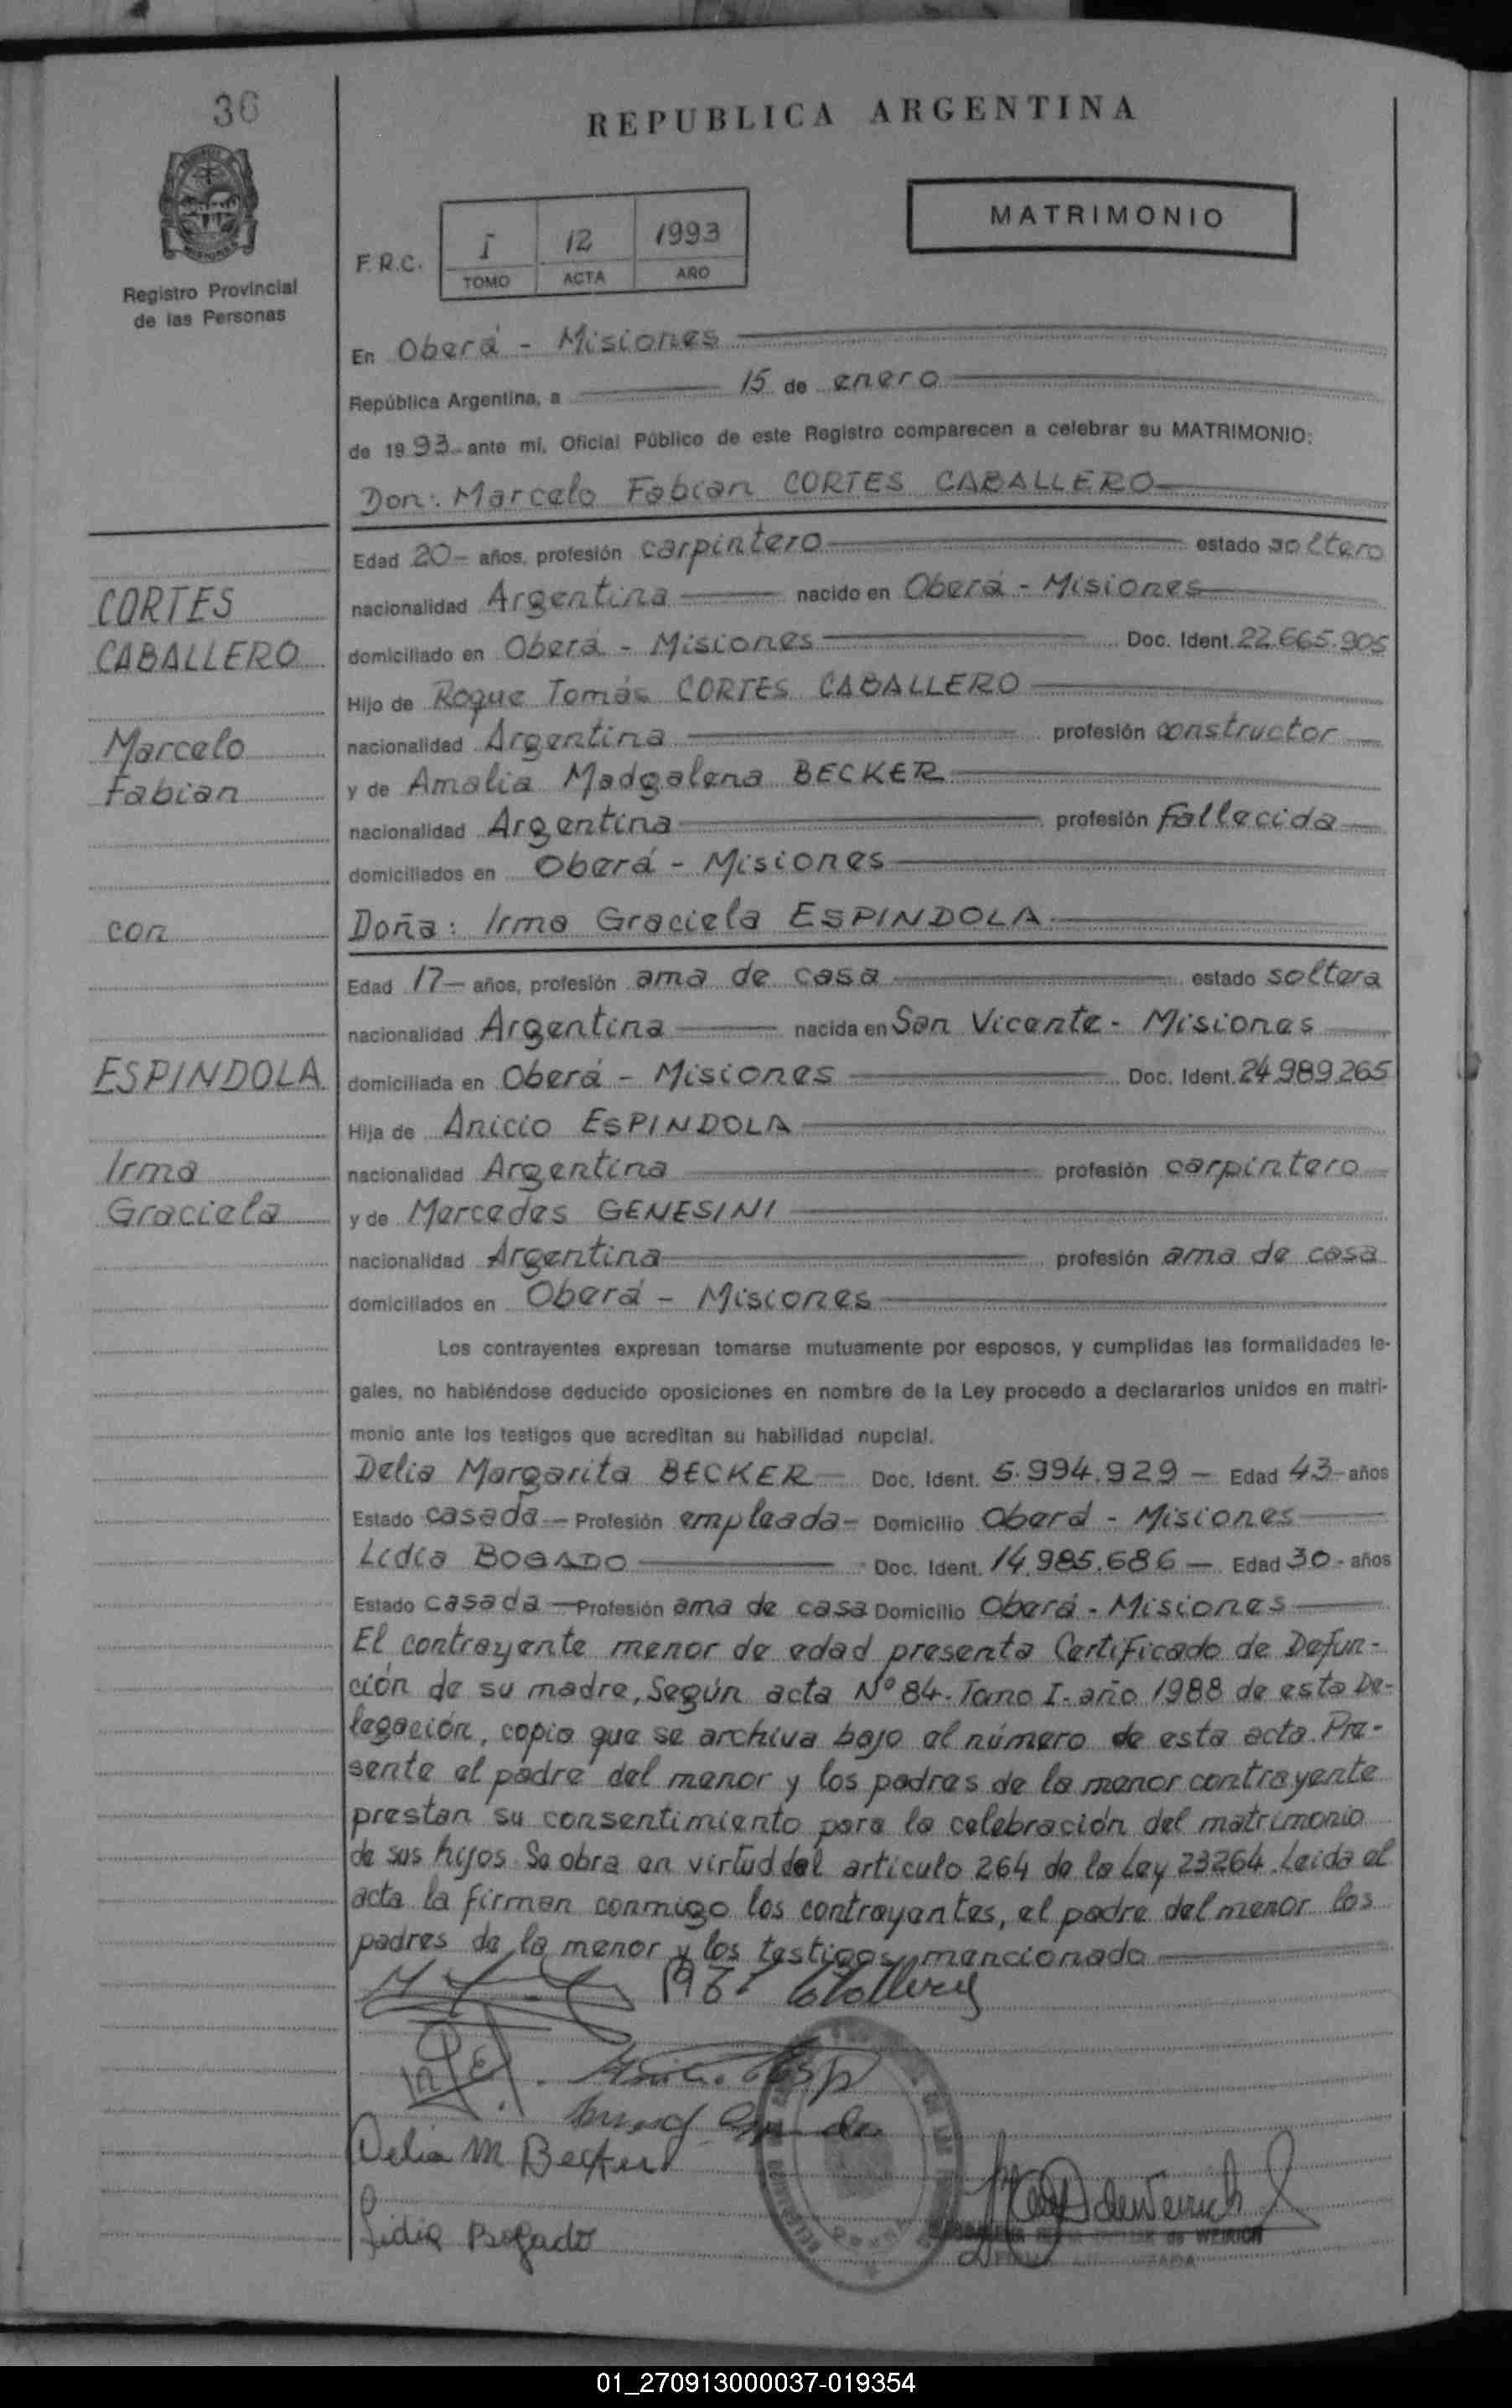 36
REPUBLICA ARGENTINA
MATRIMONIO
F.R.C.
I 12 1993
TOMO ACTA AÑO
Registro Provincial
de las Personas
En Oberá - Misiones
República Argentina, a 15 de enero
de 1993 ante mi, Oficial Público de este Registro comparecen a celebrar su MATRIMONIO:
Don: Marcelo Fabian CORTES CABALLERO
Edad 20- años, profesión carpintero estado soltero
CORTES
nacionalidad Argentina nacido en Oberá - Misiones
CABALLERO
domiciliado en Oberá - Misiones Doc. Ident. 22.665.905
Hijo de Roque Tomás CORTES CABALLERO
Marcelo
nacionalidad Argentina profesión constructor
Fabian
y de Amalia Madgalena BECKER
nacionalidad Argentina profesión fallecida
domiciliados en Oberá - Misiones
con
Doña: Irma Graciela ESPINDOLA
Edad 17- años, profesión ama de casa estado soltera
nacionalidad Argentina nacida en San Vicente - Misiones
ESPINDOLA
domiciliada en Oberá - Misiones Doc. Ident. 24.989.265
Hija de Anicio ESPINDOLA
Irma
nacionalidad Argentina profesión carpintero
Graciela
y de Mercedes GENESINI
nacionalidad Argentina profesión ama de casa
domiciliados en Oberá - Misiones
Los contrayentes expresan tomarse mutuamente por esposos, y cumplidas las formalidades le-
gales, no habiéndose deducido oposiciones en nombre de la Ley procedo a declararlos unidos en matri-
monio ante los testigos que acreditan su habilidad nupcial.
Delia Margarita BECKER - Doc. Ident. 5.994.929 - Edad 43- años
Estado casada - Profesión empleada - Domicilio Oberá - Misiones
Lidia BOGADO Doc. Ident. 14.985.686 - Edad 30- años
Estado casada - Profesión ama de casa Domicilio Oberá - Misiones
El contrayente menor de edad presenta Certificado de Defun-
ción de su madre, Según acta Nº 84- Tomo I- año 1988 de esta De-
legación, copia que se archiva bajo el número de esta acta. Pre-
sente el padre del menor y los padres de la menor contrayente
prestan su consentimiento para la celebración del matrimonio
de sus hijos. Se obra en virtud del artículo 264 de la Ley 23264. Leida el
acta la firman conmigo los contrayentes, el padre del menor los
padres de la menor y los testigos mencionado
Delia M Becker
Lidia Bogado
de WEIRICH
01_270913000037-019354